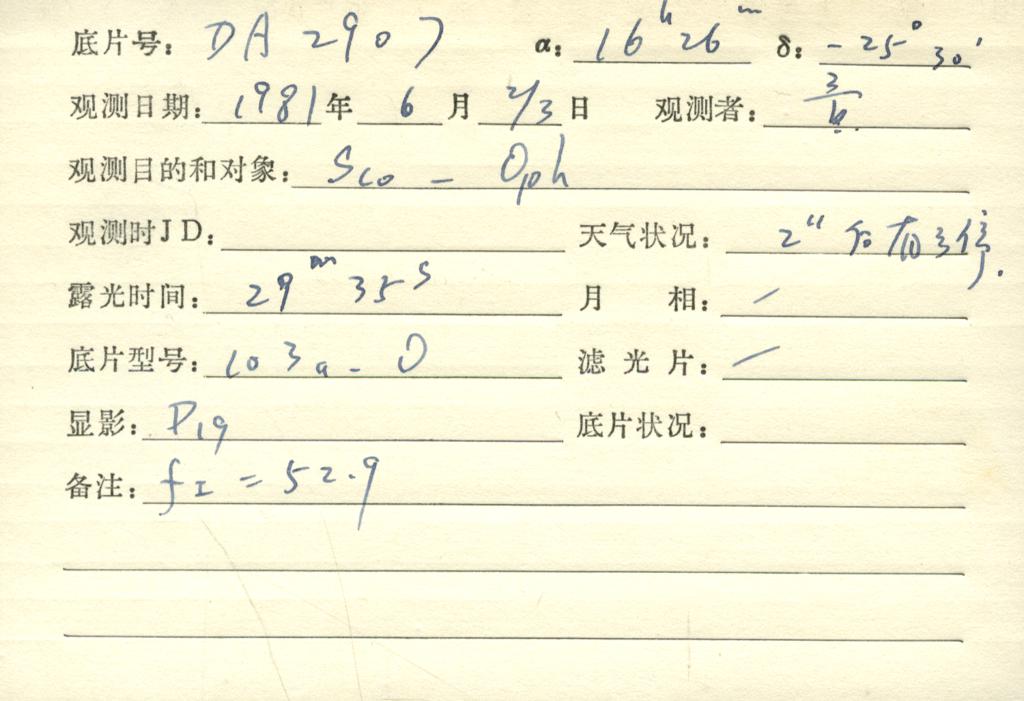 底片号: DA 2907 α: 16h 26m δ: -25° 30′
观测日期: 1981 年 6 月 2/3 日 观测者:
观测目的和对象: Sco - Oph
观测时JD: 天气状况: 2" 后有云停.
露光时间: 29m 35s 月 相: /
底片型号: 103a-O 滤光片: /
显影: D19 底片状况:
备注: fI = 52.9